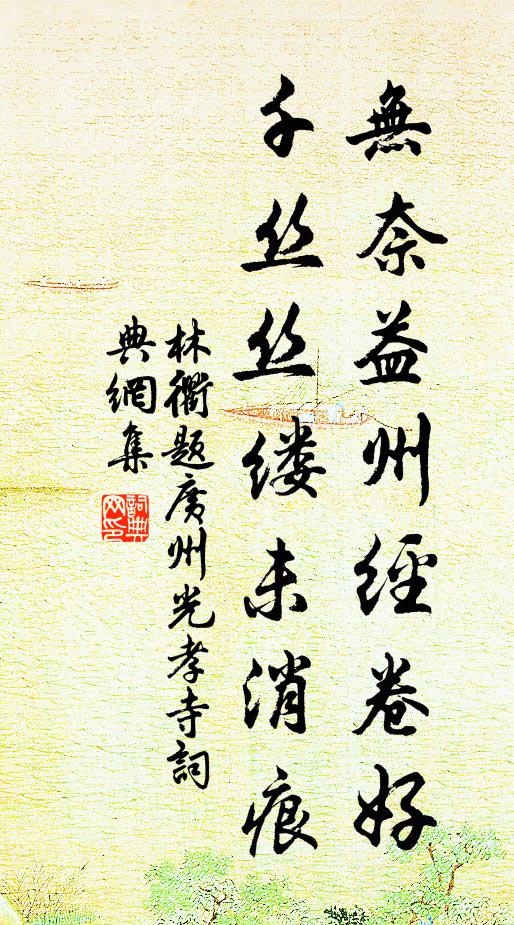 無奈益州經卷好
千丝丝缕未消痕
林衢题廣州光孝寺詞
典網集
詞典网印